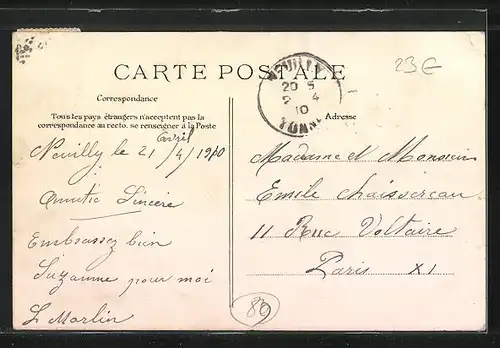 CARTE POSTALE
23€
Correspondance
Tous les pays étrangers n'acceptent pas la
correspondance au recto. se renseigner à la Poste
Adresse
NEUILLY
20 5
2 4
10
YONNE
avril
Neuilly le 21/4/1910
Amitié Sincère
Embrassez bien
Suzanne pour moi
L Marlin
Madame et Monsieur
Emile
11 Rue Voltaire
Paris XI
89